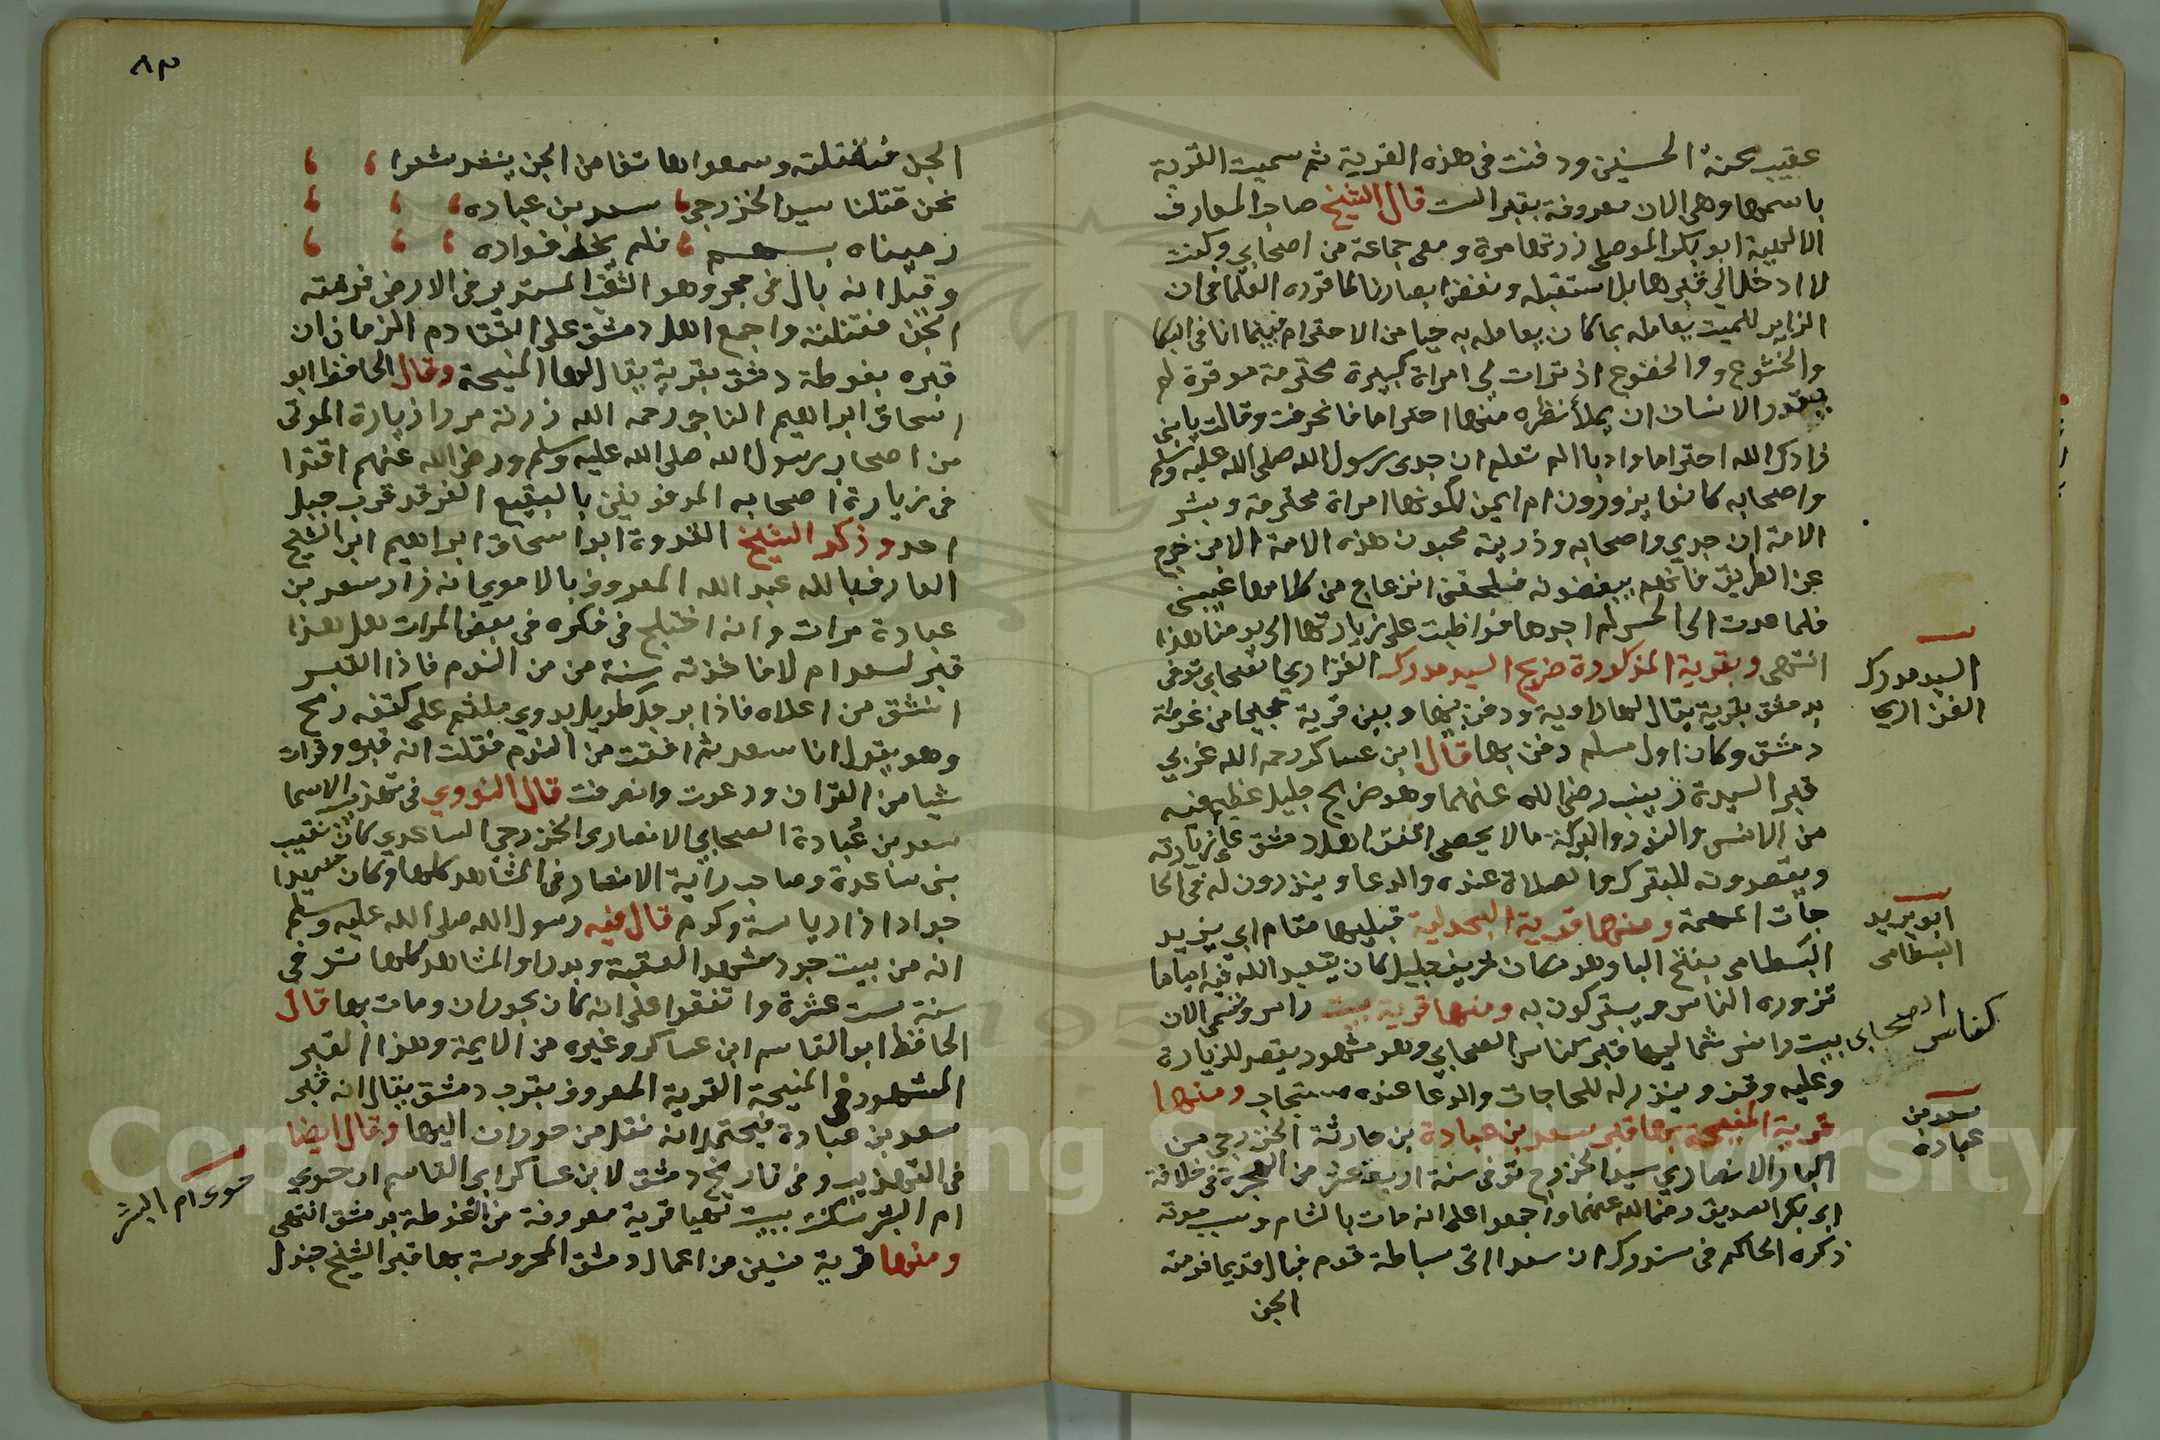 عقيب محنة الحسين ودفنت في هذه القرية ثم سميت القرية
باسمها وهي الان معروفة بقبر الست قال الشيخ صاحب المعارف
الالهية ابو بكر الموصلي زرتها مرة ومعي جماعة من اصحابي وكنت
لا ادخل الي قبرها بل استقبله ونغض ابصارنا لما قرره العلما في ان
الزاير للميت يعامله بما كان يعامله به حيا من الاحترام فبينما انا في البكا
والخشوع والخضوع اذ تراات لي امراة كبيرة محترمة موقرة لم
يقدر الانسان ان يملأ نظره منها احتراما فانحرفت وقالت يا بني
زادك الله احتراما وادبا الم تعلم ان جدي رسول الله صلى الله عليه وسلم
واصحابه كانوا يزورون ام ايمن لكونها امراة محترمة وبشر
الامة ان جدي واصحابه وذريته محبون هذه الامة الا من خرج
عن الطريق فانهم يبغضونه فلحقني انزعاج من كلامها غيبني
فلما عدت الي الحس لم اجدها فواظبت على زيارتها الى يومنا هذا
انتهى وبقرية المذكورة ضريح السيد مدرك الفزاري الصحابي توفي
بدمشق بقرية يقال لها راوية ودفن بينها وبين قرية حجيرا من غوطة
دمشق وكان اول مسلم دفن بها قال ابن عساكر رحمه الله غربي
قبر السيدة زينب رضي الله عنهما وهو ضريح جليل عظيم فيه
من الانس والنور والبركة ما لا يحصى اتفق اهل دمشق على زيارته
ويقصدونه للتبرك والصلاة عنده والدعا وينذرون له في الحا
جات المهمة ومنها قرية البحدلية قبليها مقام ابي يزيد
البسطامي بفتح البا وهو مكان شريف جليل كان يتعبد الله فيه اياما
تزوره الناس ويتبركون به ومنها قرية بيت راس وتسمى الان
بيت رانس شماليها قبر كناس الصحابي وهو مشهود يقصد للزيارة
وعليه وقف وينذر له للحاجات والدعا عنده مستجاب ومنها
قرية المنيحة بها قبر سعد بن عبادة بن حارثة الخزرجي من
البار الانصاري سيد الخزرج توفي سنة اربعة عشر من الهجرة في خلافة
ابي بكر الصديق رضي الله عنهما واجمعوا على انه مات بالشام وسبب موته
ذكره الحاكم في مستدركه ان سعدا اتى سباطة قوم فبال قديما فرمته
الجن
السيد مدرك
الفزاري
ابو يزيد
البسطامي
كناس الصحابي
سعد بن
عبادة
٨٣
الجن فقتلته وسمعوا هاتفا من الجن ينشد شعرا
نحن قتلنا سيد الخزرجي سعد بن عباده
رميناه بسهم فلم يخط فواده
وقيل انه بال في جحر وهو الثقب المستدير في الارض فرمته
الجن فقتلته واجمع اهل دمشق على التقادم الزمان ان
قبره بغوطة دمشق بقرية يقال لها المنيحة وقال الحافظ ابو
اسحاق ابراهيم الناجي رحمه الله زرته مرارا زيارة الموتى
من اصحاب رسول الله صلى الله عليه وسلم ورضي الله عنهم اقتدا
في زيارة اصحابه المدفونين بالبقيع الغرقد قرب جبل
احد وذكر الشيخ القدوة ابو اسحاق ابراهيم ابن الشيخ
العارف بالله عبد الله المعروف بالاموي انه زار سعد بن
عبادة مرات وانه اختلج في فكره في بعض المرات هل هذا
قبر لسعد ام لا فاخذته سنة من من النوم فاذا القبر
انشق من اعلاه فاذا برجل طويل بدوي ملثم على كتفه رمح
وهو يقول انا سعد ثم افقت من النوم فقلت انه قبره وقرات
شيا من القران ودعوت وانصرفت قال النووي في تهذيب الاسما
سعد بن عُبادة الصحابي الانصاري الخزرجي الساعدي كان نقيب
بني ساعدة وصاحب راية الانصار في المشاهد كلها وكان سيدا
جوادا ذا رياسة وكرم قال فيه رسول الله صلى الله عليه وسلم
انه من بيت جود شهد العقبة وبدرا والمشاهد كلها توفي
سنة ست عشرة واتفقوا على انه كان بحوران ومات بها قال
الحافظ ابو القاسم ابن عساكر وغيره من الايمة وهذا القبر
المشهور في المنيحة القرية المعروف بقرب دمشق يقال انه قبر
سعد بن عبادة فيحتمل انه نقل من حوران اليها وقال ايضا
في التهذيب وفي تاريخ دمشق لابن عساكر ابي القاسم ان حوي
ام البشر سكنت بيت لهيا قرية معروفة من الغوطة بدمشق انتهى
ومنها قرية منين من اعمال دمشق المحروسة بها قبر الشيخ جندل
حوي ام البشر
Copyright © King Saud University
1957